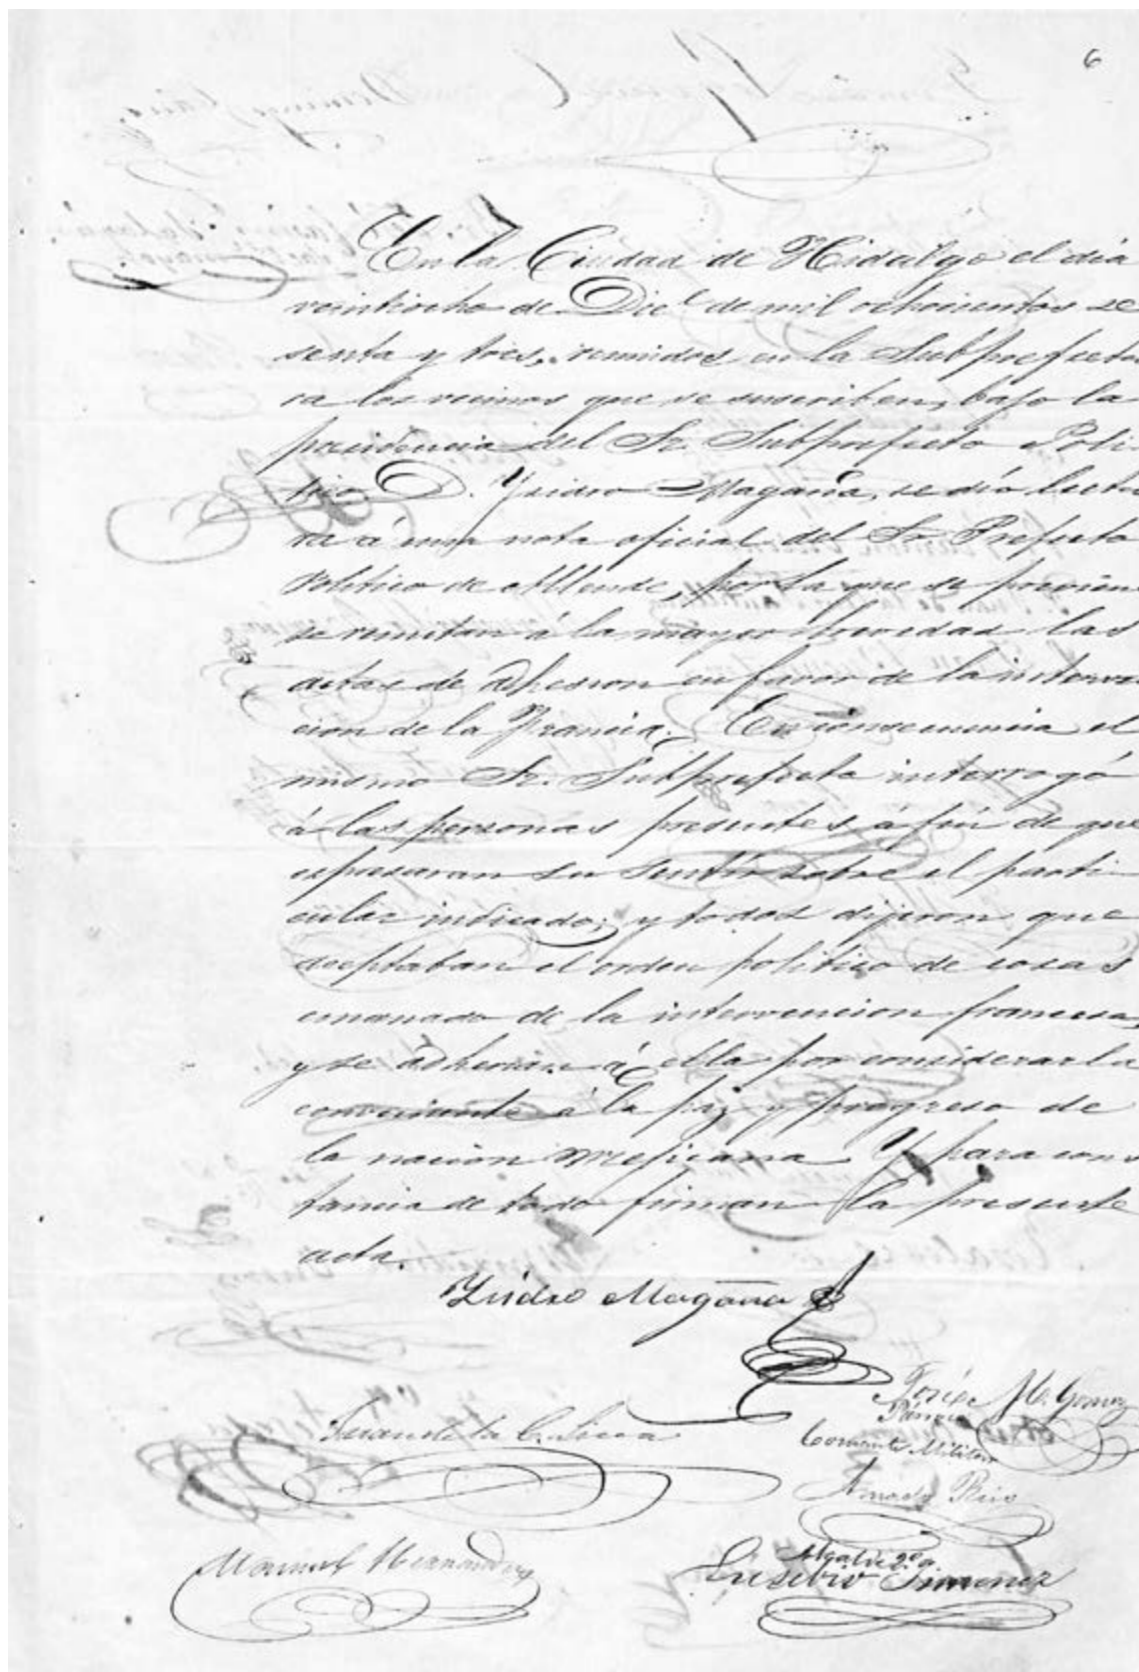 6
En la Ciudad de Hidalgo el día
veintiocho de Dice de mil ochocientos se
senta y tres, reunidos en la Subprefectu
ra los vecinos que se suscriben, bajo la
presidencia del Sr. Subprefecto Polí-
tico D. Ysidro Magaña, se dió lectu
ra á una nota oficial del Sr. Prefecto
Político de Allende, por la que se previene
se remitan á la mayor brevedad las
actas de adhesion en favor de la interven
cion de la Francia. En consecuencia el
mismo Sr. Subprefecto interrogó
á las personas presentes á fin de que
espresaran su sentir sobre el parti-
cular indicado; y todos dijeron que
aceptaban el orden político de cosas
emanado de la intervencion francesa,
y se adherían á ella por considerarla
conveniente á la paz y progreso de
la nación mexicana. Y para cons
tancia de todo firman la presente
acta.
Ysidro Magaña
José M. Gomez
Comante Militar
Juan de la C.
Amado Rico
Manuel Hernandez
Alcalde 2o
Eusebio Jimenez